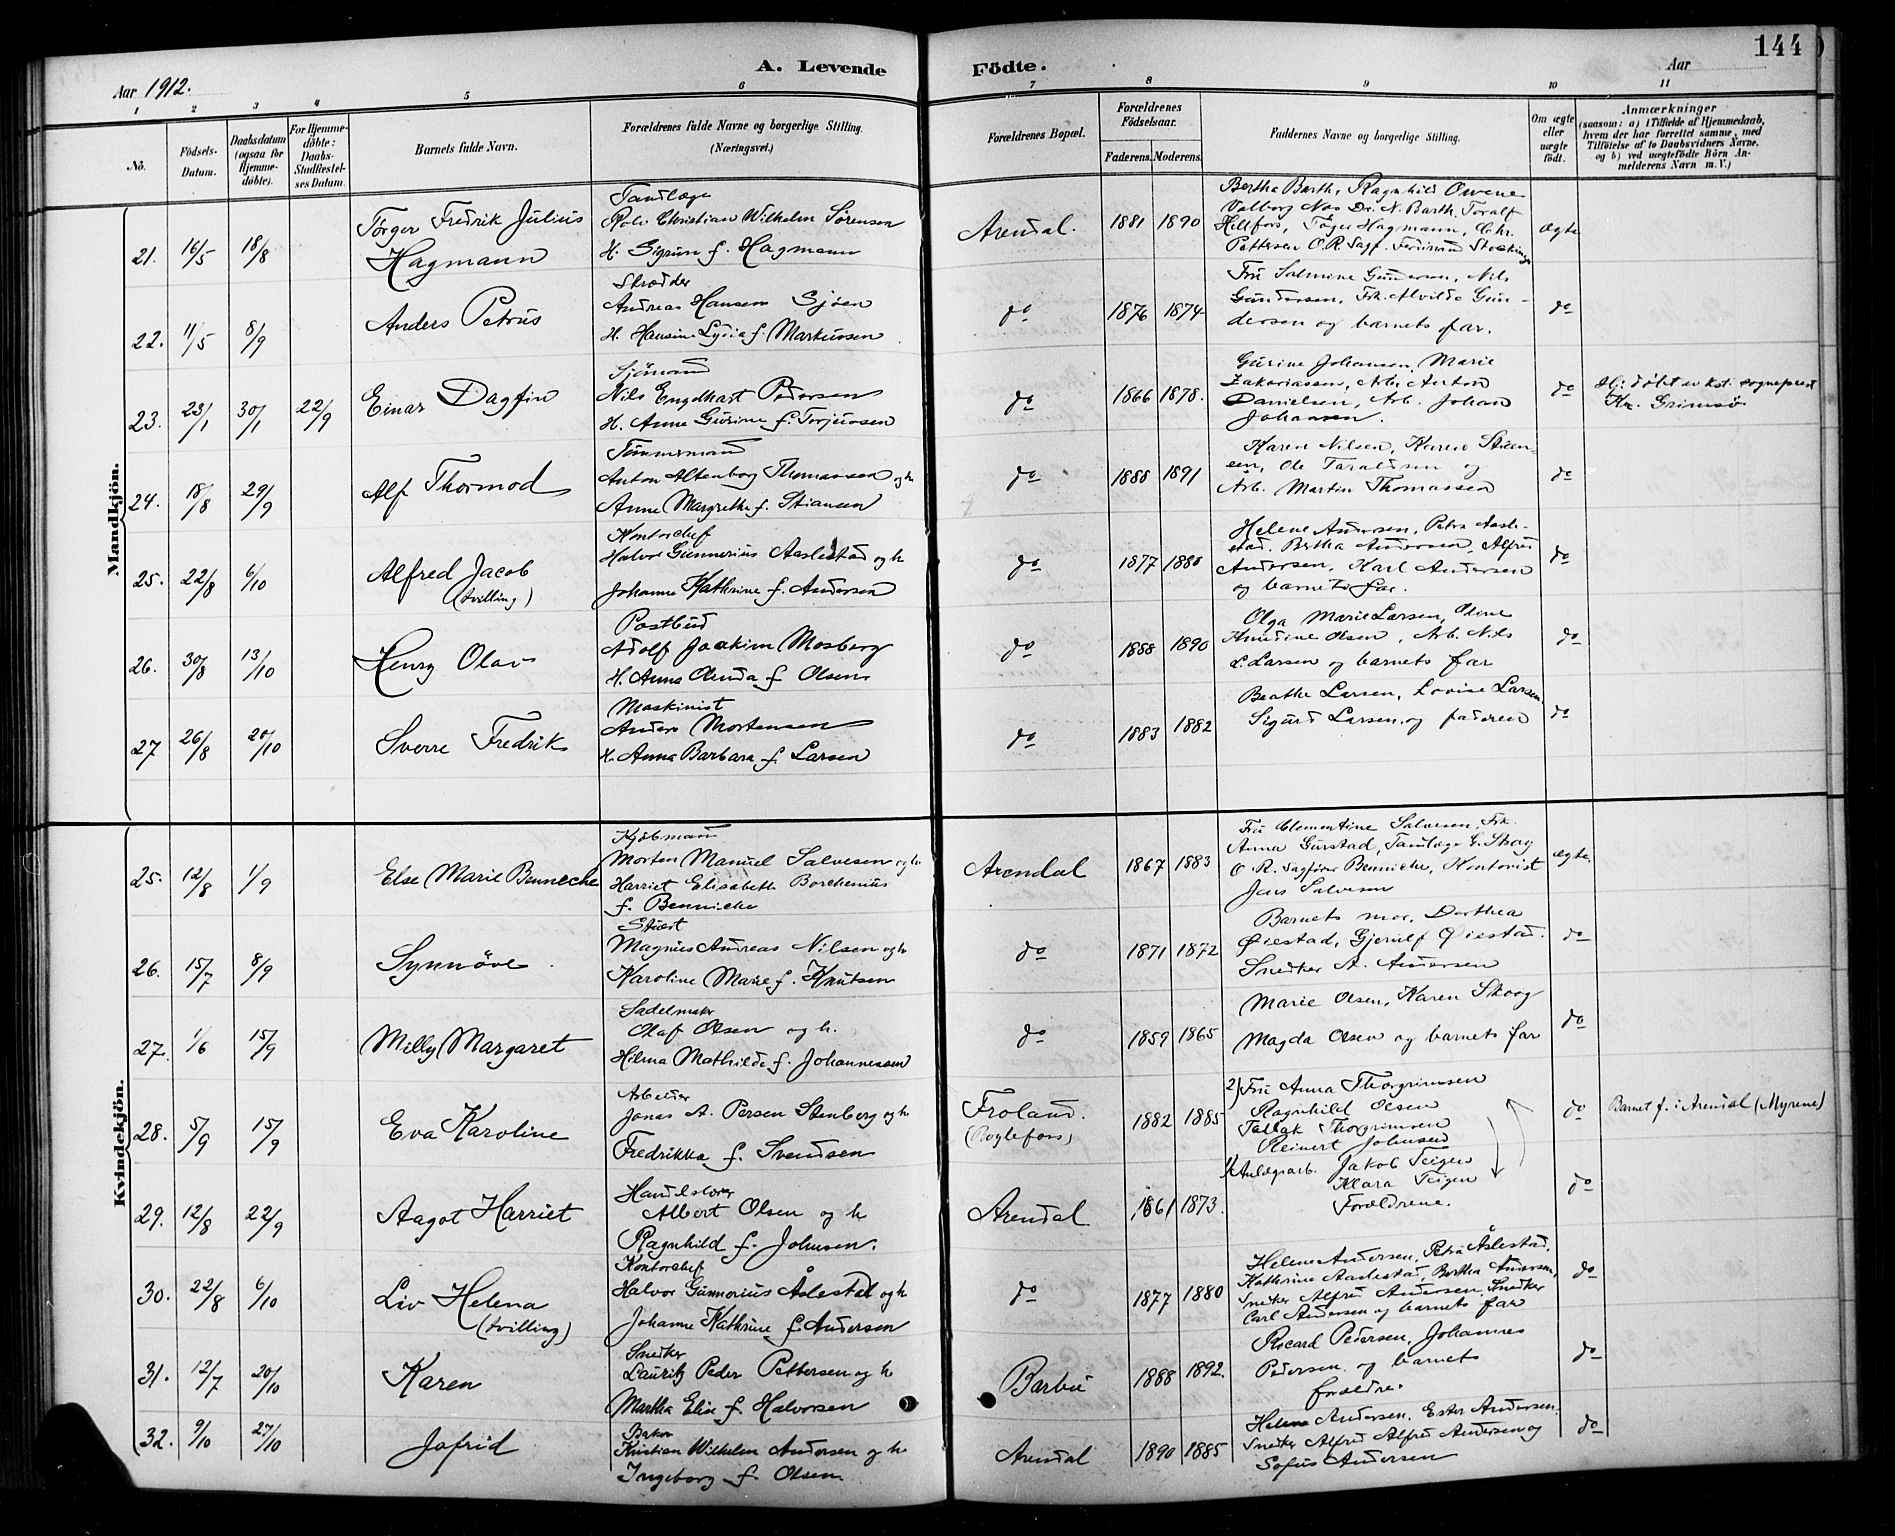 144
Aar 1912.
A. Levende Födte.
Aar
1 2 3 4 5 6 7 8 9 10 11
No.
Födsels-Datum.
Daabsdatum (ogsaa for Hjemme-döbte).
For Hjemme-döbte: Daabs-Stadfæstel-ses Datum.
Barnets fulde Navn.
Forældrenes fulde Navne og borgerlige Stilling. (Næringsvei.)
Forældrenes Bopæl.
Forældrenes Födselsaar.
Faderens. Moderens.
Faddernes Navne og borgerlige Stilling.
Om ægte eller uægte födt.
Anmærkninger
(saasom: a) i Tilfælde af Hjemmedaab, hvem der har forrettet samme, med Tilföielse af to Daabsvidners Navne. og b) ved uægtefödte Börn An-melderens Navn m. V.)
Mandkjön.
21. 16/5 18/8
Törger Fredrik Julius
Hagmann
Tandlæge
Christian Wilhelm Sørensen
H. Sigrun f. Hagmann
Arendal. 1881 1890
Bertha Barth, Ragnhild
Valborg Næs Dr. N. Barth, Toralf
Hagmann, Chr.
Pettersen O. R. Sagf. Ferdinand
ægte
22. 11/5 8/9
Anders Petrus
Skrædder
Andreas Hansen Sjøen
H. Hansine Lydia f. Markussen
do 1876 1874
Fru Salmine Gundersen, Nils
Gundersen, Frk. Alvilde Gun-
dersen og barnets far.
do
23. 23/1 30/1 22/9
Einar Dagfin
Sjömand
Nils Engelhart Pedersen
H. Anne Gurine f. Torjussen
do 1866 1878.
Gurine Johansen, Marie
Zakariassen, Arb. Anton
Danielsen, Arb. Johan
Johansen.
do
Hj: døbt av kst. sogneprest
Kr. Grimsø
24. 18/8 29/9
Alf Thormod
Tømmermand
Anton Altenborg Thomassen og h
Anne Margrethe f. Stiansen
do 1888 1891
Karen Nilsen, Karen Stian-
sen, Ole Taraldsen og
Arb. Martin Thomassen
do
25. 22/8 6/10
Alfred Jacob
(tvilling)
Kontorchef
Halvor Gunnerius Aaslestad og h
Johanne Kathrine f. Andersen
do 1877 1880
Helene Andersen, Petra Aasle-
stad. Bertha Andersen, Alfred
Andersen, Karl Andersen
og barnets far.
do
26. 30/8 13/10
Henry Olav
Postbud
Adolf Joakim Mosberg
H. Anna f. Olsen
do 1888 1890
Olga Marie Larsen, Oline
Knudine Olsen, Arb. Nils
L. Larsen og barnets far
do
27 26/8 20/10
Sverre Fredrik
Maskinist
Anders Mortensen
H. Anna Barbara f. Larsen
do 1883 1882
Beathe Larsen, Lovise Larsen
Sigurd Larsen og faderen
do
Kvindekjön.
25. 12/8 1/9
Else Marie Bennecke
Kjøbmann
Morten Manuel Salvesen og h
Harriet Elisabeth Borchenius
f. Bennicke
Arendal 1867 1883
Fru Clementine Salvesen, Frk.
Anna Gurstad, Tandlæge
O. R. Sagfører Bennicke, Kontorist
Jens Salvesen
ægte
26. 15/7 8/9
Synnöve
Stuert
Magnus Andreas Nilsen og h
Karoline Marie f. Knutsen
do 1871 1872
Barnets mor, Dorthea
Øiestad, Gjerulf Øiestad.
Snedker A. Andersen
do
27. 1/6 15/9
Milly Margaret
Sadelmaker
Olaf Olsen og h.
Hilma Mathilde f. Johannessen
do 1859 1865
Marie Olsen, Karen Skoog
Magda Olsen og barnets far
do
28. 5/9 15/9
Eva Karoline
Arbeider
Jonas A. Persen Stenberg og h
Fredrikka f. Svendsen
Froland.
(Boylefoss)
1882 1885
2) Fru Anna Thorgrimsen
Ragnhild Olsen
Tallak Thorgrimsen
Reinert Johnsen
do
Barnet f. i Arendal (Myrene)
29. 12/8 22/9
Aagot Harriet
Handelslærer
Albert Olsen og h
Ragnhild f. Johnsen.
Arendal 1861 1873.
1) Anlægsarb. Jakob Teigen
Klara Teigen
Forældrene.
do
30. 22/8 6/10
Liv Helena
(tvilling)
Kontorchef
Halvor Gunnerius Åslestad og h
Johanne Kathrine f. Andersen
do 1877 1880
Helene Andersen, Petra Åslestad,
Kathrine Aaslestad, Bertha Andersen,
Snedker Alfred Andersen, Snedker
Carl Andersen og barnets far
do
31. 12/7 20/10
Karen
Snedker
Lauritz Peder Pettersen og h
Martha Elise f. Halvorsen
Barbu 1888 1892.
Rikard Pedersen, Johannes
Pedersen og barnets
foreldre.
do
32. 9/10 27/10
Jofrid
Baker
Kristian Wilhelm Andersen og h
Ingeborg f. Olsen
Arendal 1890 1885
Helene Andersen, Ester Andersen.
Snedker Alfred Alfred Andersen og
Sofus Andersen
do